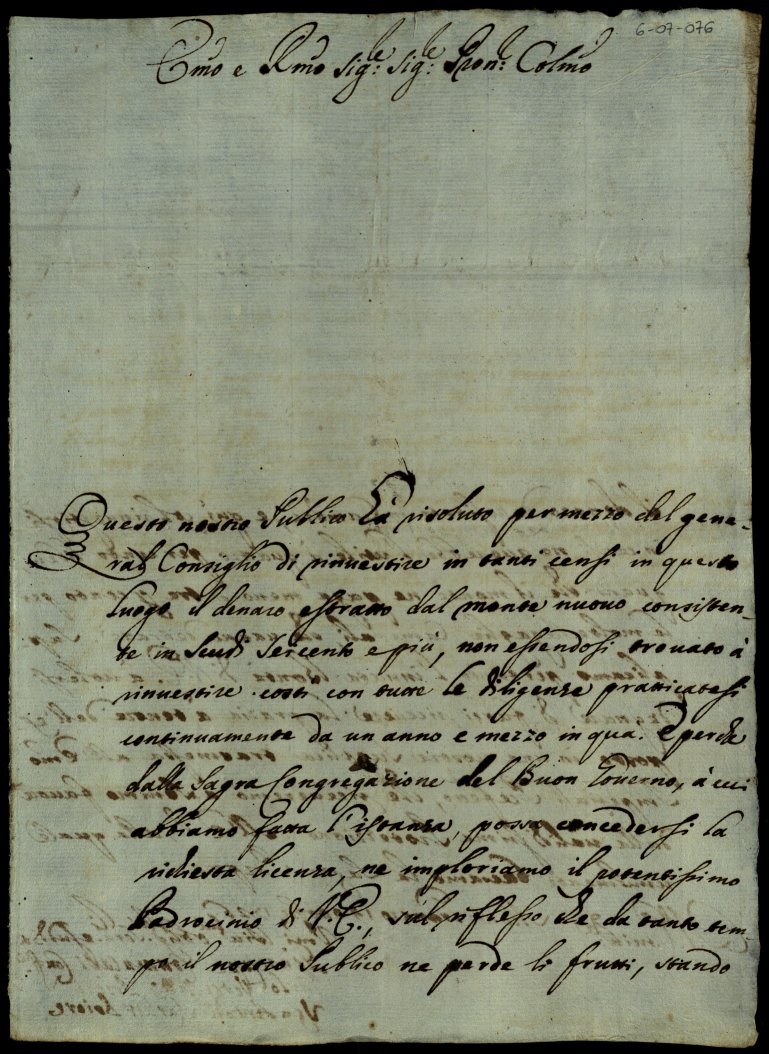 6-07-076
Emo e Rmo Sig:re Sig:re Pron:e Colmo
Questo nostro Publico hà risoluto per mezzo del gene-
ral Consiglio di rinvestire in tanti censi in questo
Luogo il denaro estratto dal monte nuovo consisten-
te in Scudi Seicento e più, non essendosi trovato à
rinvestire costì con tutte le diligenze pratticatesi
continuamente da un anno e mezzo in qua. E perche
dalla Sagra Congregazione del Buon Governo, à cui
abbiamo fatta l'istanza, possa concedersi la
richiesta licenza, ne imploriamo il potentissimo
Padrocinio di V.E., sul riflesso, che da tanto tem-
po il nostro Publico ne perde li frutti, stando